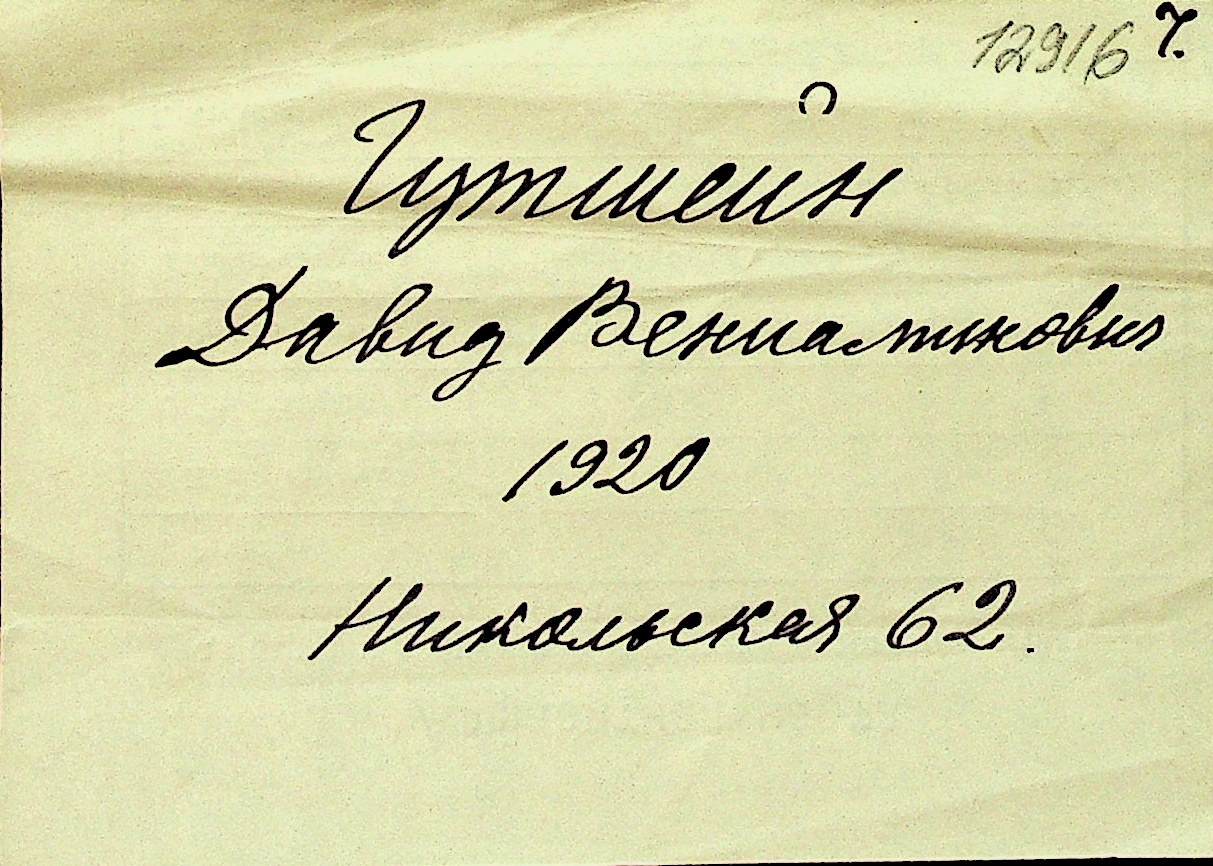 12916 7.
Гутшейн
Давид Вениаминович
1920
Никольская 62.